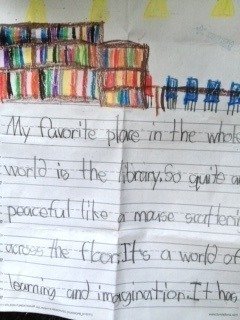 My favorite place in the whole
world is the library.So quite a
peaceful like a mouse
across the floor.It's a world of
learning and imagination.It has